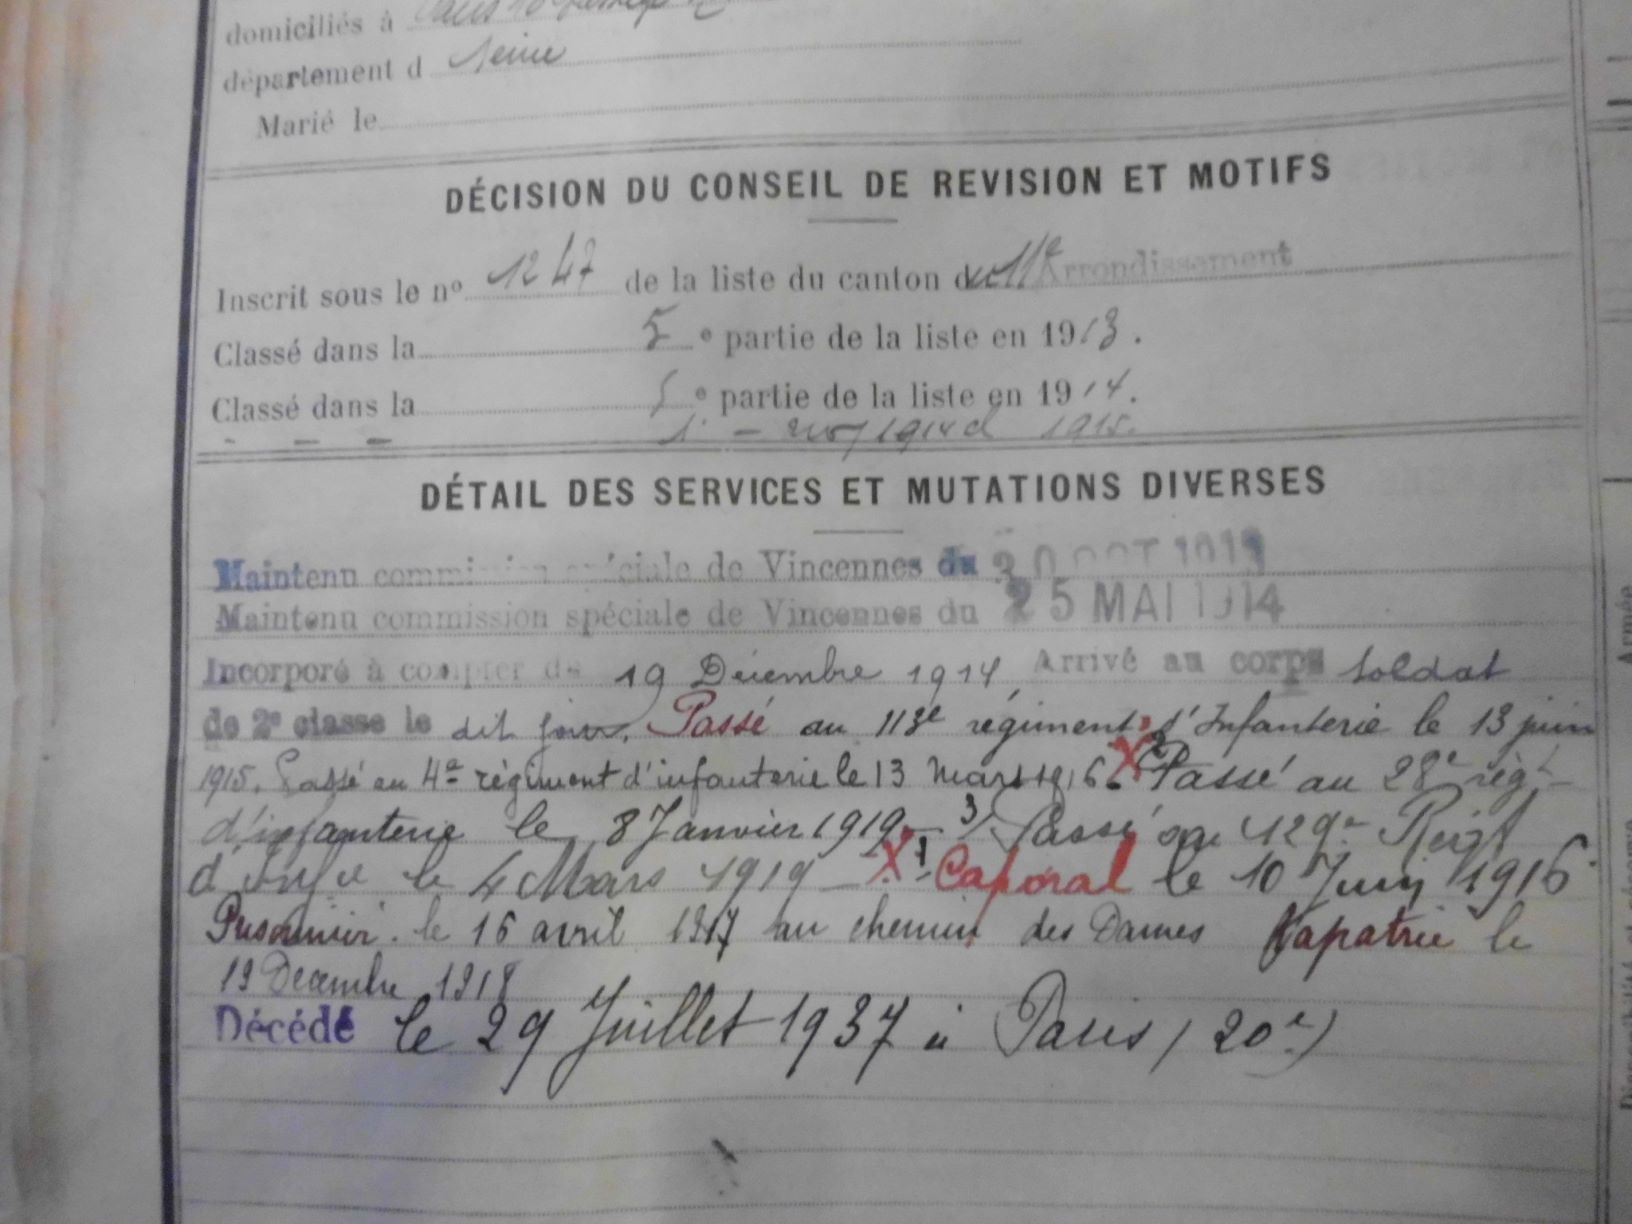 domiciliés à Paris
département d Seine
Marié le
DÉCISION DU CONSEIL DE REVISION ET MOTIFS
Inscrit sous le nº 1247 de la liste du canton du 11e Arrondissement
Classé dans la 5e partie de la liste en 1913.
Classé dans la 5e partie de la liste en 1914.
- - - 1915.
DÉTAIL DES SERVICES ET MUTATIONS DIVERSES
Maintenu commission spéciale de Vincennes du 30 OCT 1913
Maintenu commission spéciale de Vincennes du 25 MAI 1914
Incorporé à compter du 19 Décembre 1914, Arrivé au corps soldat
de 2e classe le dit jour. Passé au 113e régiment d'Infanterie le 13 juin
1915. Passé au 4e régiment d'infanterie le 13 Mars 1916. X 2 Passé au 28e régt
d'infanterie le 8 Janvier 1919 - 3/ Passé au 129e Régt
d'Infie le 4 Mars 1919 - X 1 Caporal le 10 Juin 1916.
Prisonnier le 16 avril 1917 au chemin des Dames Rapatrié le
19 Décembre 1918
Décédé le 29 Juillet 1937 à Paris (20e)
Armée